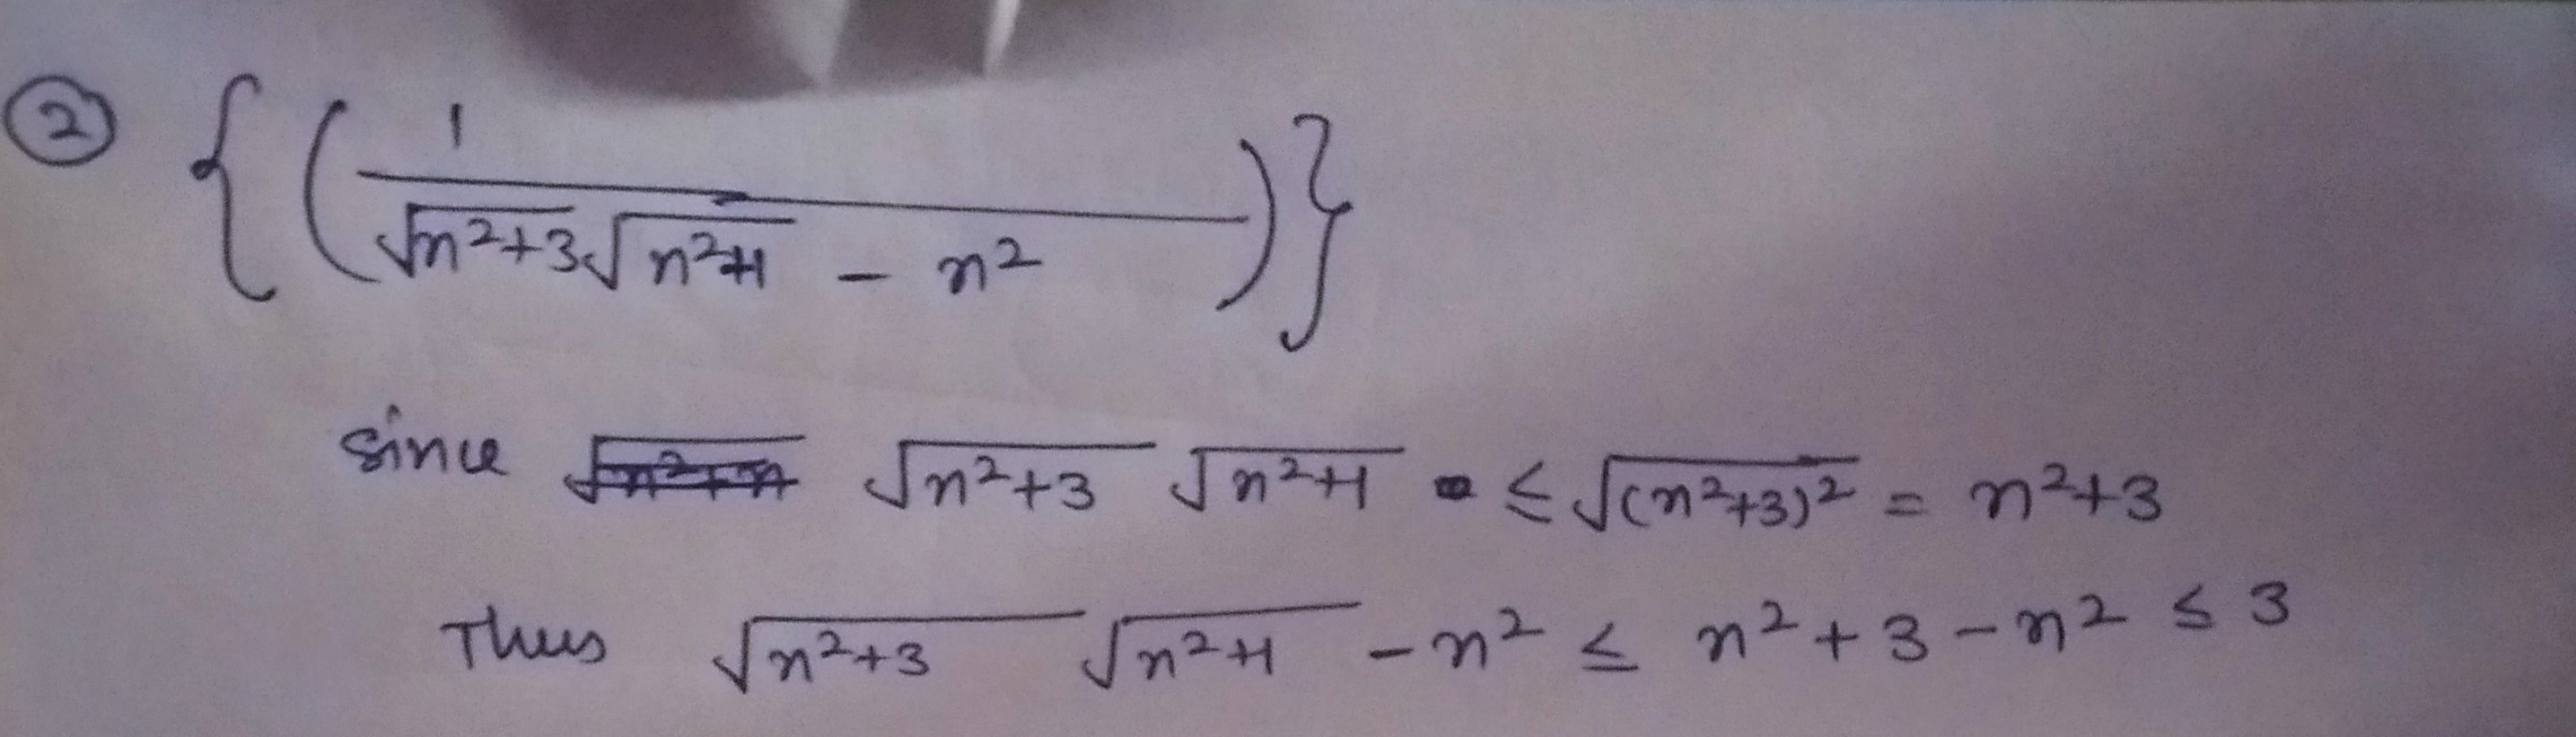 ② {( 1 / √n²+3 √n²+1 - n² )}
since √n²+3 √n²+1 ≤ √(n²+3)² = n²+3
Thus √n²+3 √n²+1 - n² ≤ n²+3-n² ≤ 3